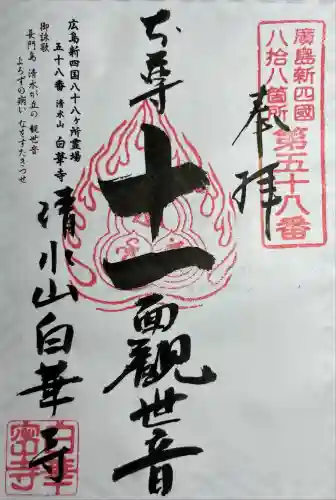 廣島新四國
八拾八箇所
第五十八番
奉拝
本尊
十一面観世音
清水山白華寺
広島新四国八十八ヶ所霊場
五十八番 清水山 白華寺
御詠歌
長門島 清水が丘の 観世音
よろずの病い なをすたきつせ